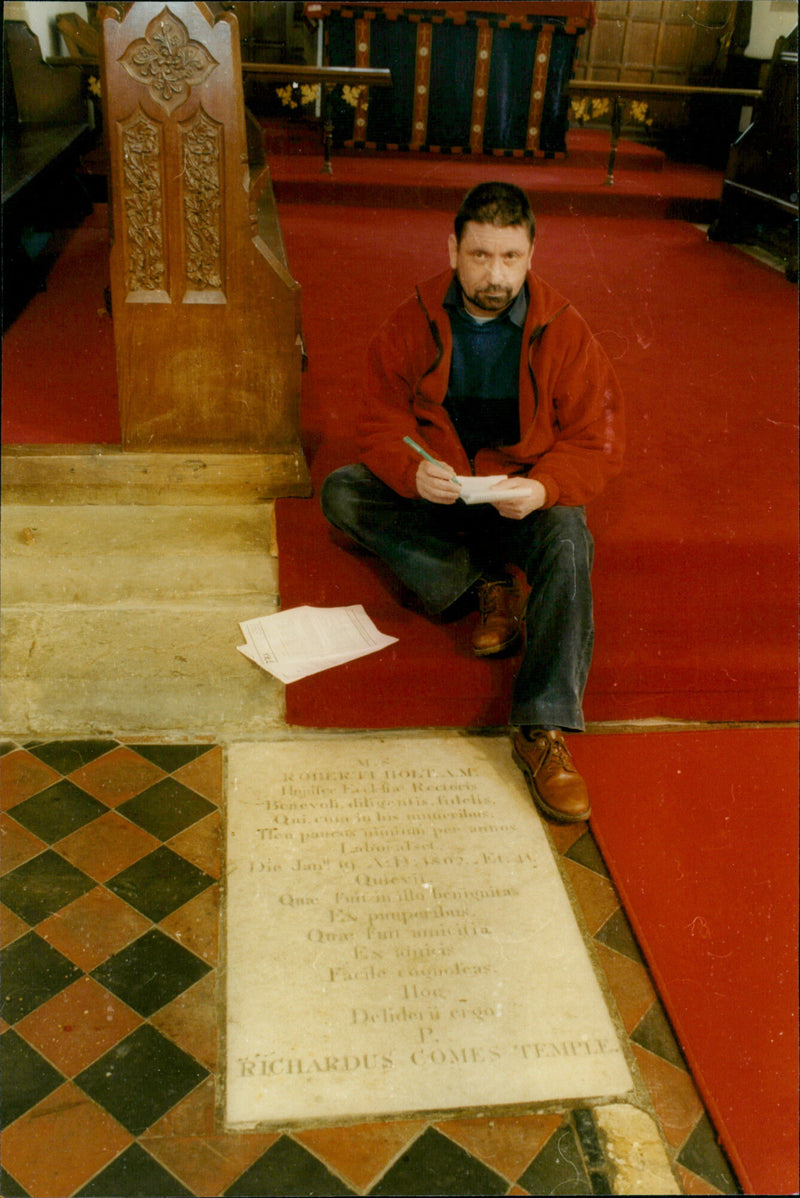 M. S.
ROBERTI HOLT. A.M.
Hujusce Ecclesiæ Rectoris
Benevoli, diligentis, fidelis,
Qui, cum in his muneribus,
Heu paucos nimium per annos
Laborasset
Die Jan.ii 19. A:D: 1802. Et. 41.
Quievit.
Quæ fuit in illo benignitas
Ex pauperibus,
Quæ fuit amicitia
Ex amicis
Facile cognoscas.
Hog
Desiderii ergo
P.
RICHARDUS COMES TEMPLE.